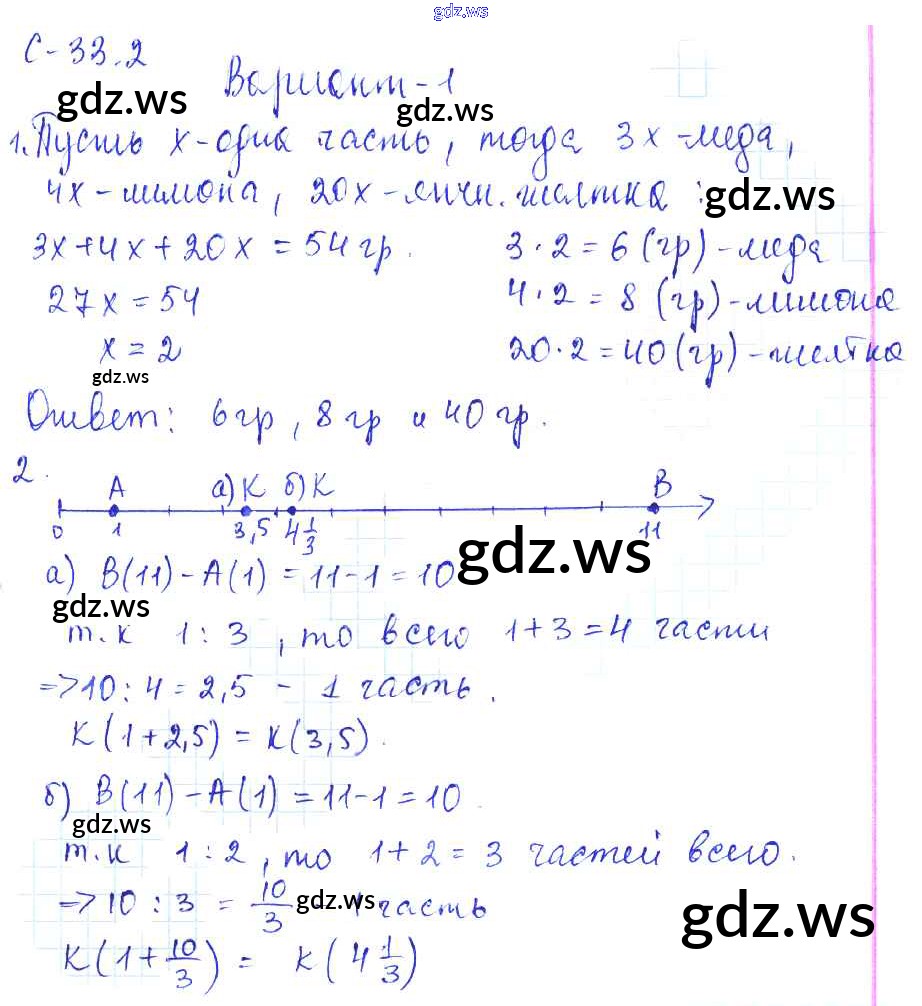 gdz.ws
С-33.2
Вариант-1
gdz.ws
gdz.ws
1. Пусть х-одна часть, тогда 3х-меда,
4х-лимона, 20х-яичн. желтка :
gdz.ws
3х+4х+20х = 54 гр. 3·2=6 (гр)-меда
27х = 54 4·2 = 8 (гр)-лимона
х = 2 20·2=40(гр)-желтка
gdz.ws
Ответ: 6гр, 8 гр и 40 гр.
2.
А а)К б)К В
0 1 3,5 4 1/3 11
gdz.ws
а) В(11)-А(1) = 11-1 = 10
gdz.ws
т.к 1:3, то всего 1+3=4 части
=>10:4=2,5 - 1 часть.
К(1+2,5) = К(3,5).
б) В(11)-А(1) = 11-1 = 10.
gdz.ws
т.к 1:2, то 1+2=3 частей всего.
=> 10:3 = 10/3 - 1 часть
gdz.ws
gdz.ws
К(1+10/3) = К(4 1/3)